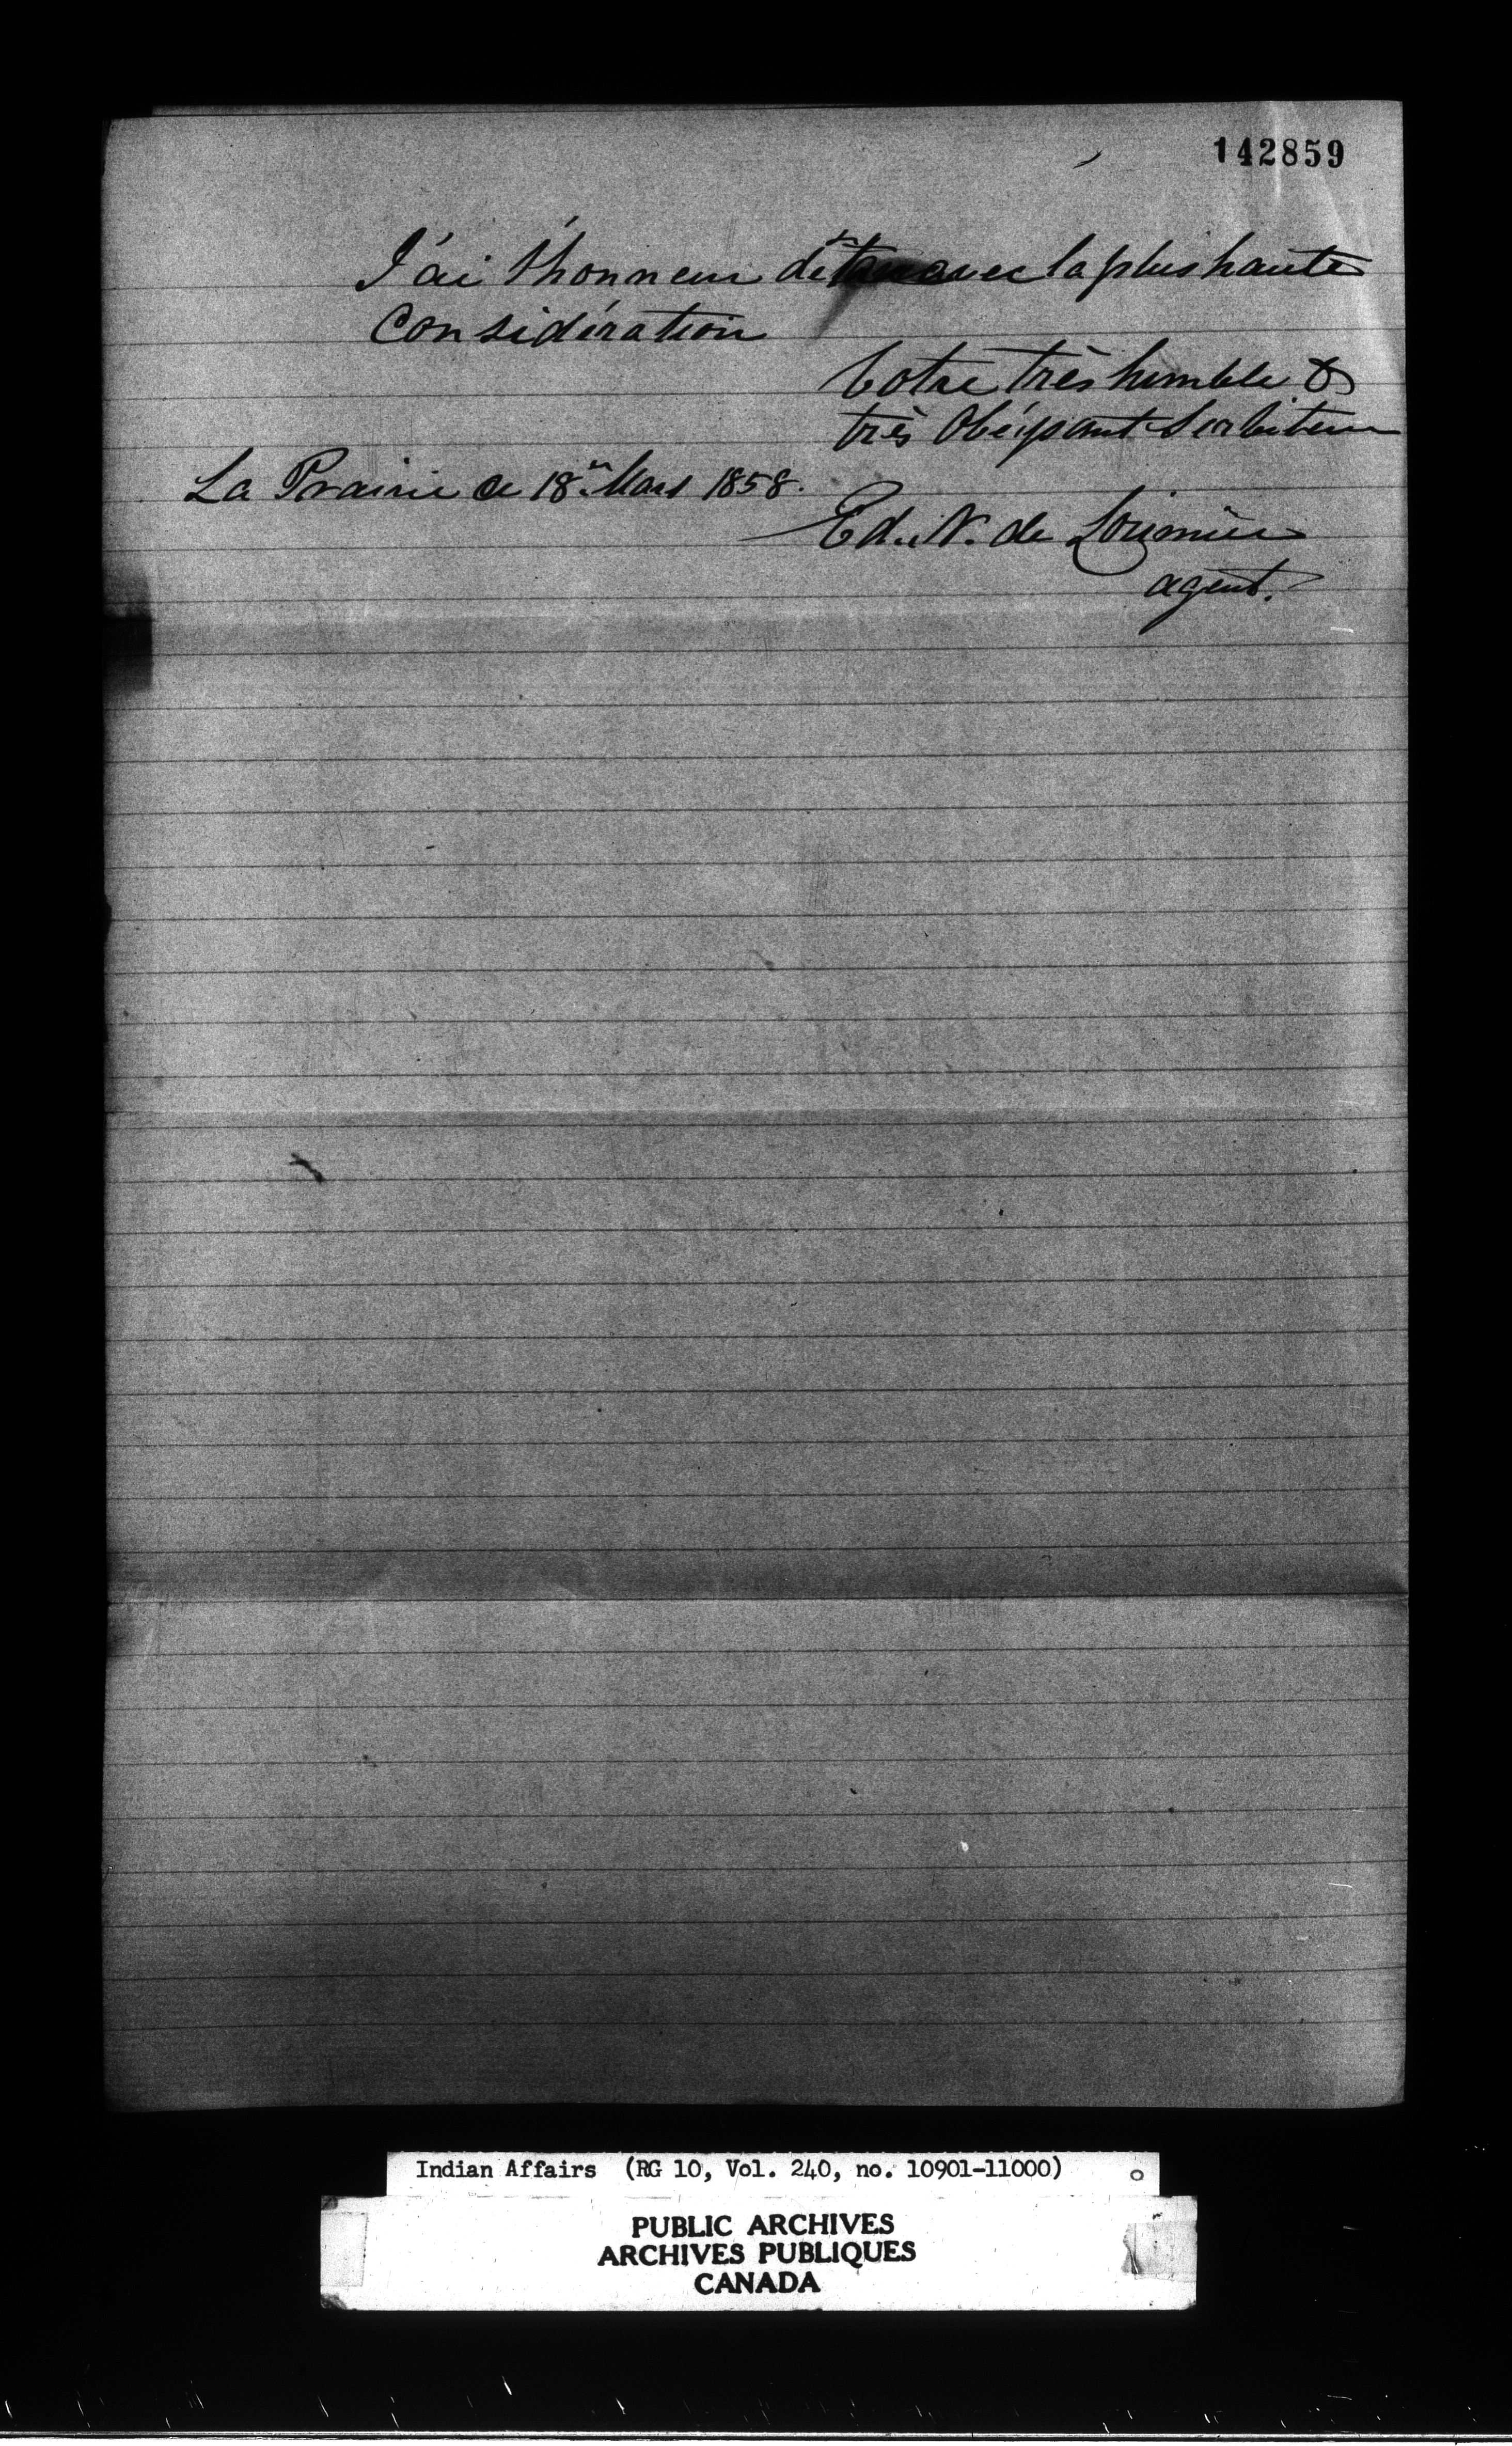 142859
J'ai l'honneur d'être avec la plus haute
Considération
Votre très humble &
très Obéissant Serviteur
La Prairie ce 18 Mars 1858.
Ed. N. de Lorimier
agent.
Indian Affairs (RG 10, Vol. 240, no. 10901-11000)
PUBLIC ARCHIVES
ARCHIVES PUBLIQUES
CANADA